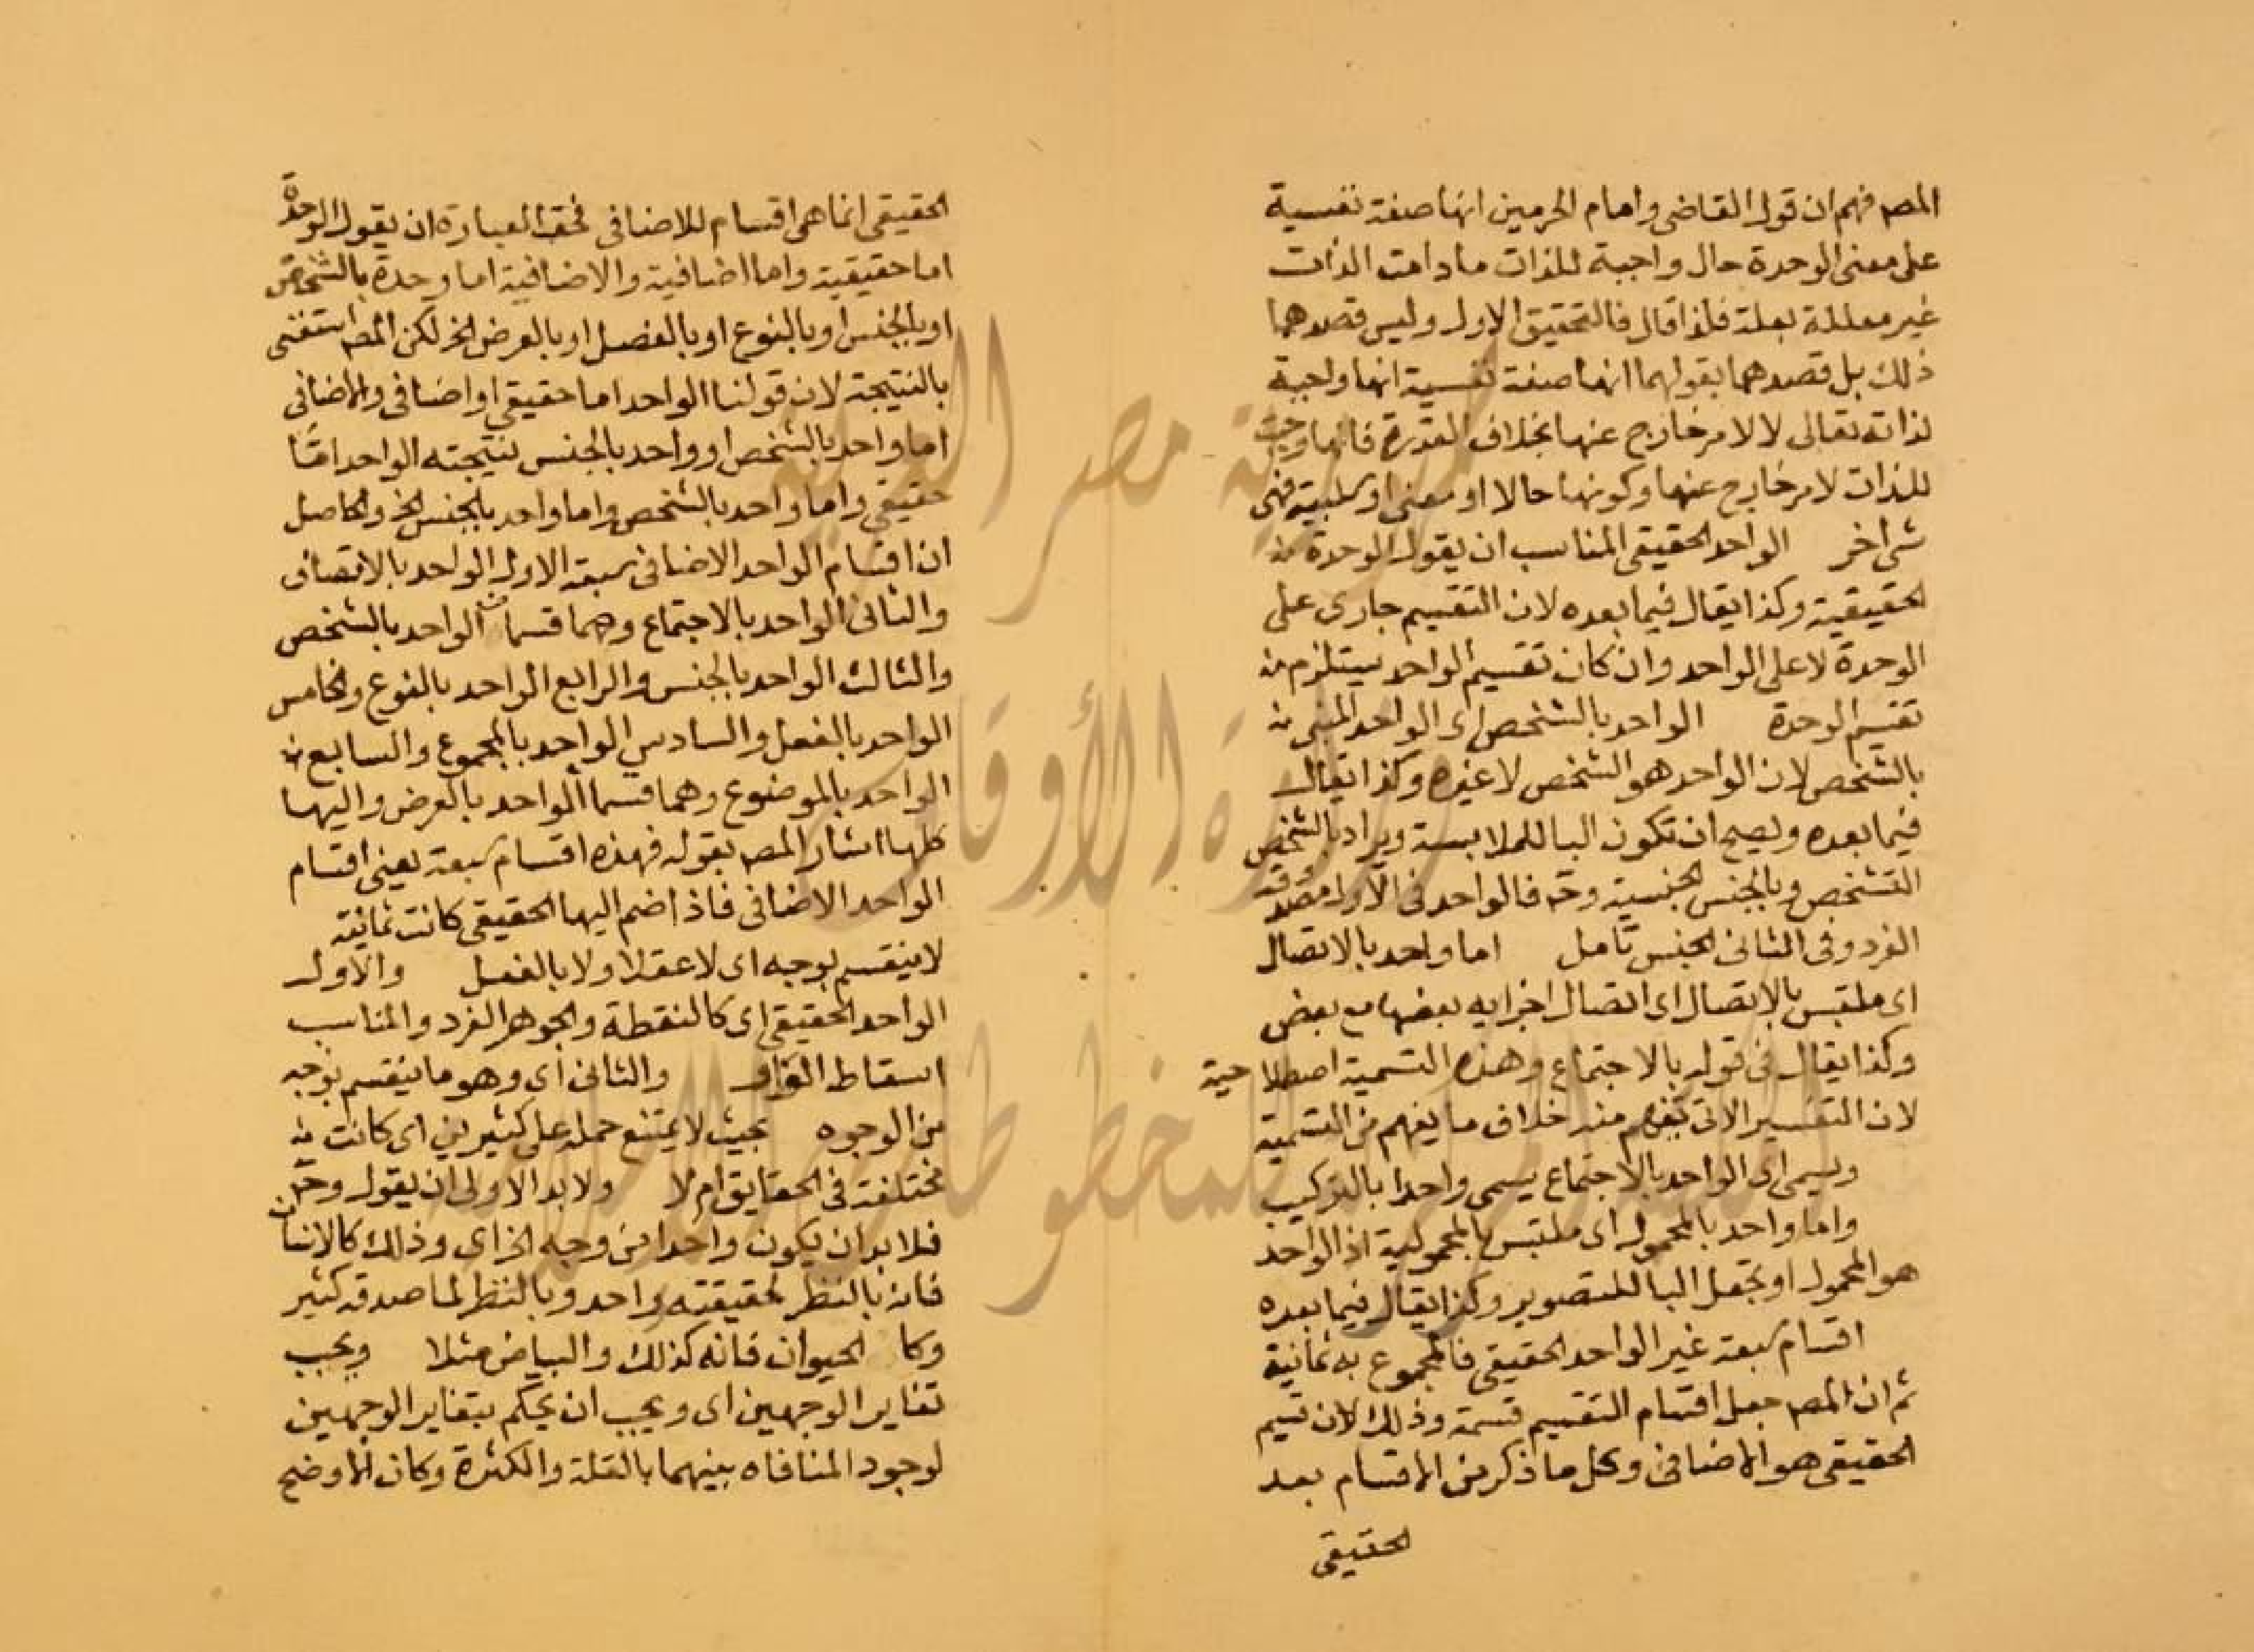 المصـ فهم ان قول القاضى وامام الحرمين انها صفة نفسية
على معنى الوحدة حال واجبة للذات مادامت الذات
غير معللة بعلة فلذا قال فالتحقيق الاول وليس قصدهما
ذلك بل قصدهما بقولهما انها صفة نفسية انها واجبة
لذاته تعالى لا لامر خارج عنها بخلاف القدرة فانها وجبت
للذات لامر خارج عنها وكونها حالا او معنى او سلبية فهى
شى اخر الواحد الحقيقى المناسب ان يقول الوحدة
الحقيقية وكذا يقال فيما بعده لان التقسيم جارى على
الوحدة لا على الواحد وان كان تقسيم الواحد يستلزم
تقسيم الوحدة الواحد بالشخص اى الواحد
بالشخص لان الواحد هو الشخص لا غيره وكذا يقال
فيما بعده ويصح ان تكون البا للملابسة ويراد بالشخص
التشخص وبالجنس الجنسية وحـ فالواحد فى الاول مصدوقه
الفرد وفى الثانى الجنس تامل اما واحد بالاتصال
اى ملتبس بالاتصال اى اتصال اجزايه بعضها مع بعض
وكذا يقال فى قوله بالاجتماع وهذه التسمية اصطلاحية
لان التفسير الاتى يفهم منه خلاف ما يفهم من التسمية
ويسمى اى الواحد بالاجتماع يسمى واحدا بالتركيب
واما واحد بالمحمول اى ملتبس بالمحمولية اذ الواحد
هو المحمول او تجعل البا للتصوير وكذا يقال فيما بعده
اقسام سبعة غير الواحد الحقيقى فالمجموع به ثمانية
ثم ان المصـ جعل اقسام التقسيم قسمة وذلك لان قسيم
الحقيقى هو الاضافى وكل ما ذكر من الاقسام بعد
الحقيقى
الحقيقى انما هى اقسام للاضافى فحق العبارة ان يقول الوحدة
اما حقيقية واما اضافية والاضافية اما وحدة بالشخص
او بالجنس او بالنوع او بالفصل او بالعرض الخ لكن المصـ استغنى
بالنتيجة لان قولنا الواحد اما حقيقى او اضافى والاضافى
اما واحد بالشخص او واحد بالجنس نتيجته الواحد اما
حقيقى واما واحد بالشخص واما واحد بالجنس الخ والحاصل
ان اقسام الواحد الاضافى سبعة الاول الواحد بالاتصال
والثانى الواحد بالاجتماع وهما قسما الواحد بالشخص
والثالث الواحد بالجنس والرابع الواحد بالنوع والخامس
الواحد بالفصل والسادس الواحد بالمحمول والسابع
الواحد بالموضوع وهما قسما الواحد بالعرض واليها
كلها اشار المصـ بقوله فهذه اقسام سبعة يعنى اقسام
الواحد الاضافى فاذا ضم اليها الحقيقى كانت ثمانية
لا ينقسم بوجه اى لا عقلا ولا بالفعل والاول
الواحد الحقيقى اى كالنقطة والجوهر الفرد والمناسب
اسقاط الواو والثانى اى وهو ما ينقسم بوجه
من الوجوه بحيث لا يمتنع حمله على كثيرين اى كانت
مختلفة فى الحقايق ام لا ولا بد الاولى ان يقول وحـ
فلا بد ان يكون واحدا من وجه اخر اى وذلك كالانسان
فانه بالنظر لحقيقته واحد وبالنظر لما صدقه كثير
وكا الحيوان فانه كذلك والبياض مثلا ويجب
تغاير الوجهين اى ويجب ان يحكم بتغاير الوجهين
لوجود المنافاه بينهما بالقلة والكثرة وكان الاوضح